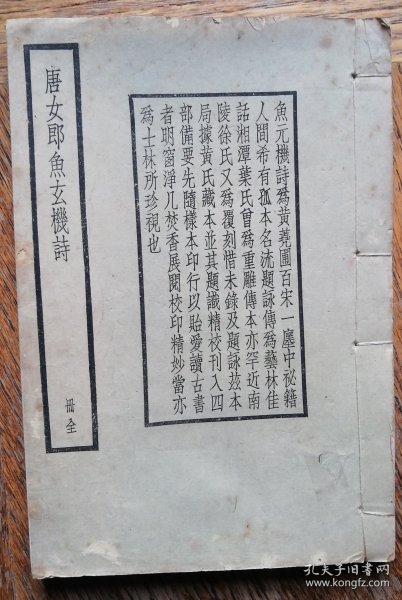 魚元機詩爲黃蕘圃百宋一廛中祕籍
人間希有孤本名流題詠傳爲藝林佳
話湘潭葉氏曾爲重雕傳本亦罕近南
陵徐氏又爲覆刻惜未錄及題詠茲本
局據黃氏藏本並其題識精校刊入四
部備要先隨樣本印行以貽愛讀古書
者明窗淨几焚香展閱校印精妙當亦
爲士林所珍視也
唐女郎魚玄機詩
冊全
孔夫子旧书网
www.kongfz.com